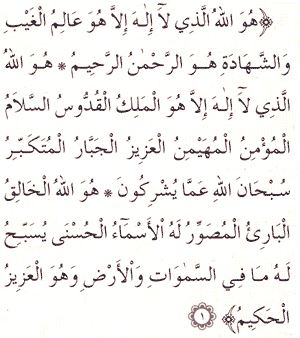 ﴿هُوَ اللهُ الَّذِي لَآ إِلٰهَ إِلاَّ هُوَ عَالِمُ الْغَيْبِ
وَالشَّهَادَةِ هُوَ الرَّحْمٰنُ الرَّحِيمُ * هُوَ اللهُ
الَّذِي لَآ إِلٰهَ إِلاَّ هُوَ الْمَلِكُ الْقُدُّوسُ السَّلاَمُ
الْمُؤْمِنُ الْمُهَيْمِنُ الْعَزِيزُ الْجَبَّارُ الْمُتَكَبِّرُ
سُبْحَانَ اللهِ عَمَّا يُشْرِكُونَ * هُوَ اللهُ الْخَالِقُ
الْبَارِئُ الْمُصَوِّرُ لَهُ الْأَسْمَآءُ الْحُسْنَى يُسَبِّحُ
لَهُ مَا فِي السَّمٰوَاتِ وَالْأَرْضِ وَهُوَ الْعَزِيزُ
الْحَكِيمُ﴾ ١